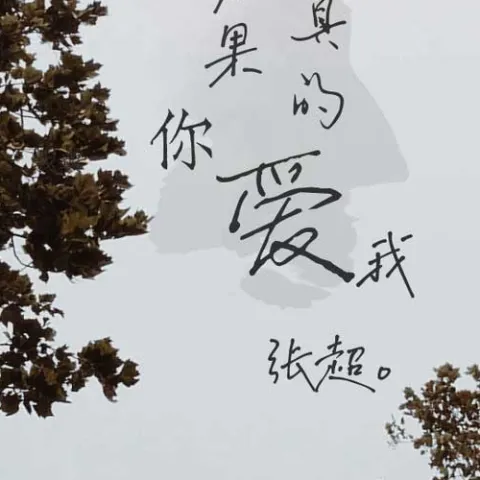 果
你
真的
爱
我
张超。